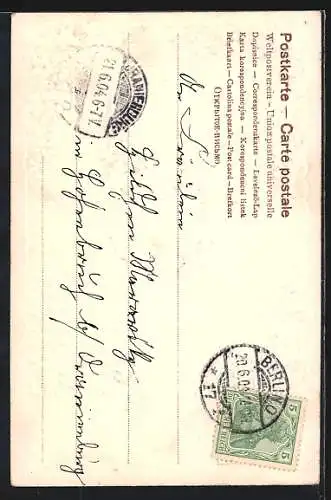 Postkarte — Carte postale
Weltpostverein — Union postale universelle
Dopisnice — Correspondenzkarte — Levelező-Lap
Karta korespondencyjna — Korespondenční listek
Briefkaart — Cartolina postale — Post card — Brefkort
Открытое письмо
An Fräulein
in Hohenbruch b/ Oranienburg
ORANIENBURG
21.6.04.6-7V.
BERLIN.O
20.6.04
17
5
5